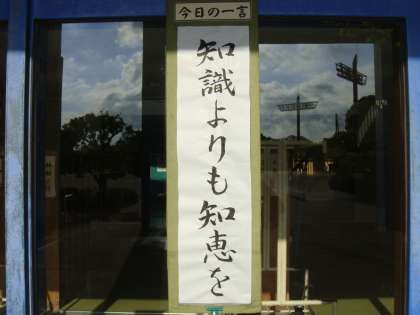 今日の一言
知識よりも知恵を